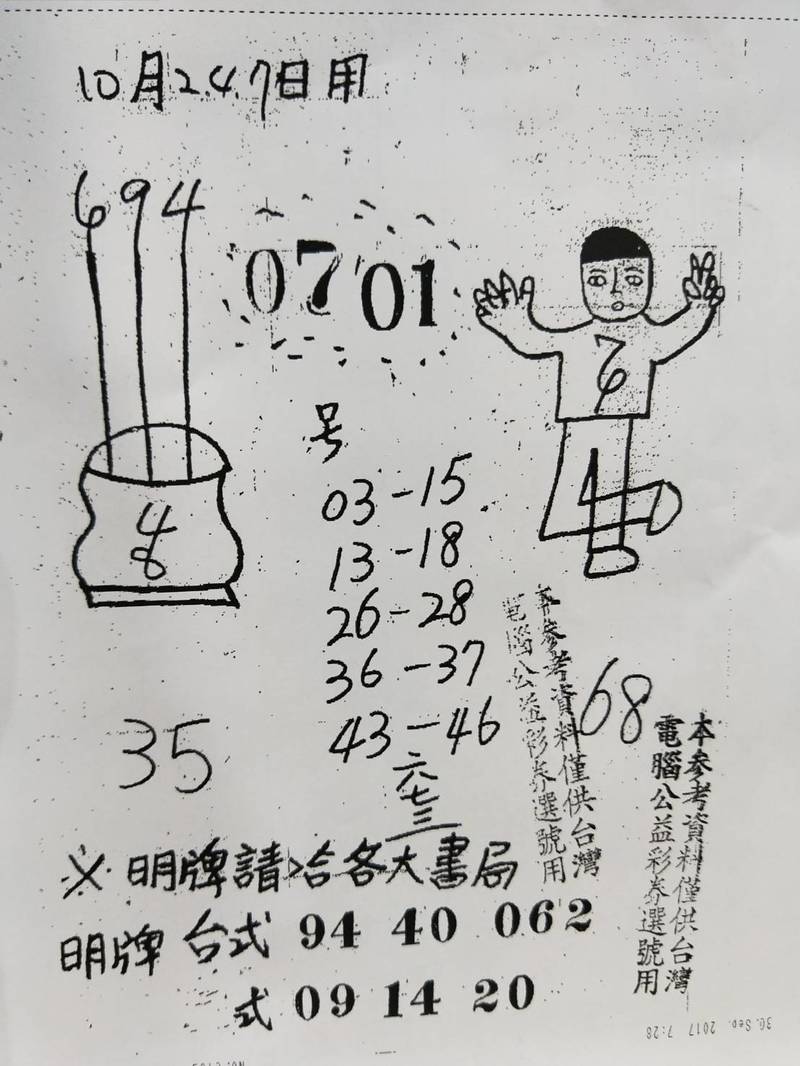 10月247日用
694
0701
6
1
号
03-15
13-18
26-28
36-37
43-46
六七三
48
35
68
本參考資料僅供台灣
電腦公益彩券選號用
本參考資料僅供台灣
電腦公益彩券選號用
※明牌請洽各大書局
明牌 台式 94 40 062
式 09 14 20
30. Sep. 2017 7:28